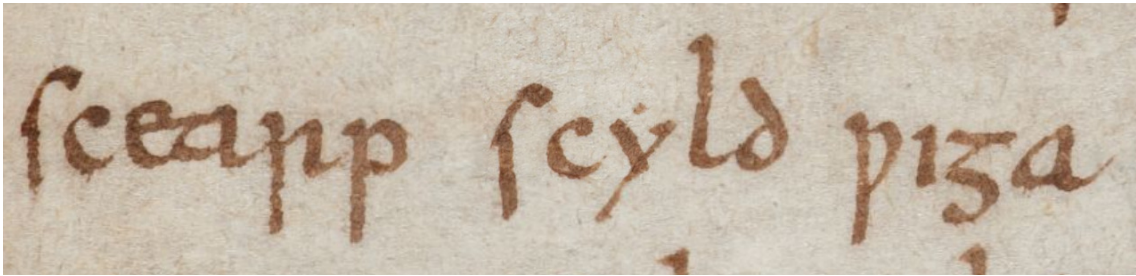 scearp scyld ƿiga